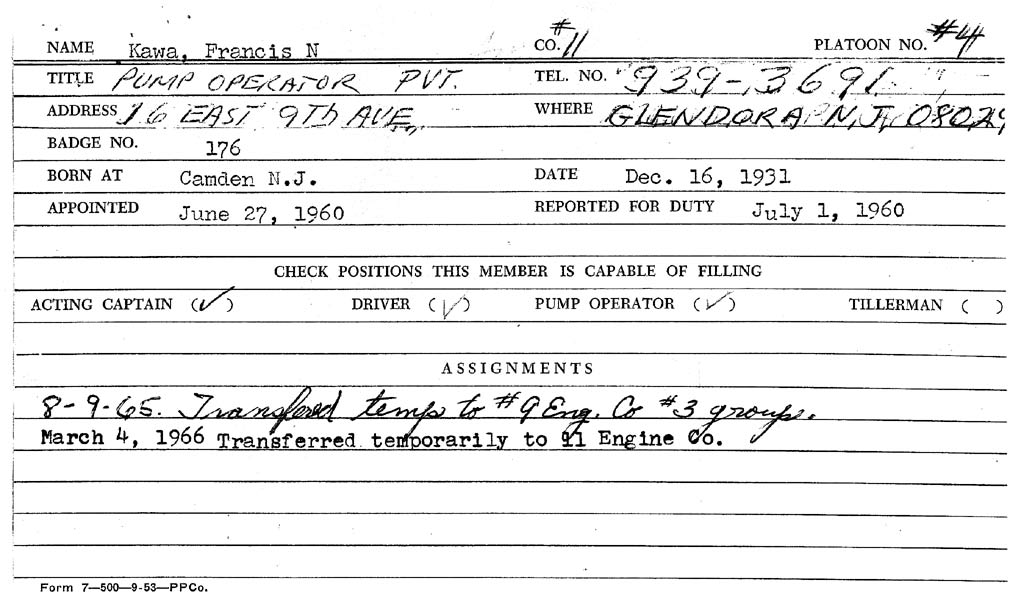 NAME Kawa, Francis N CO. #11 PLATOON NO. #4
TITLE PUMP OPERATOR PVT. TEL. NO. 939-3691
ADDRESS 16 EAST 9Th AVE., WHERE GLENDORA N.J. 08029
BADGE NO. 176
BORN AT Camden N.J. DATE Dec. 16, 1931
APPOINTED June 27, 1960 REPORTED FOR DUTY July 1, 1960
CHECK POSITIONS THIS MEMBER IS CAPABLE OF FILLING
ACTING CAPTAIN (✓) DRIVER (✓) PUMP OPERATOR (✓) TILLERMAN ( )
ASSIGNMENTS
8-9-65. Transfered temp to #9 Eng. Co #3 groups.
March 4, 1966 Transferred temporarily to 11 Engine Co.
Form 7—500—9-53—PPCo.